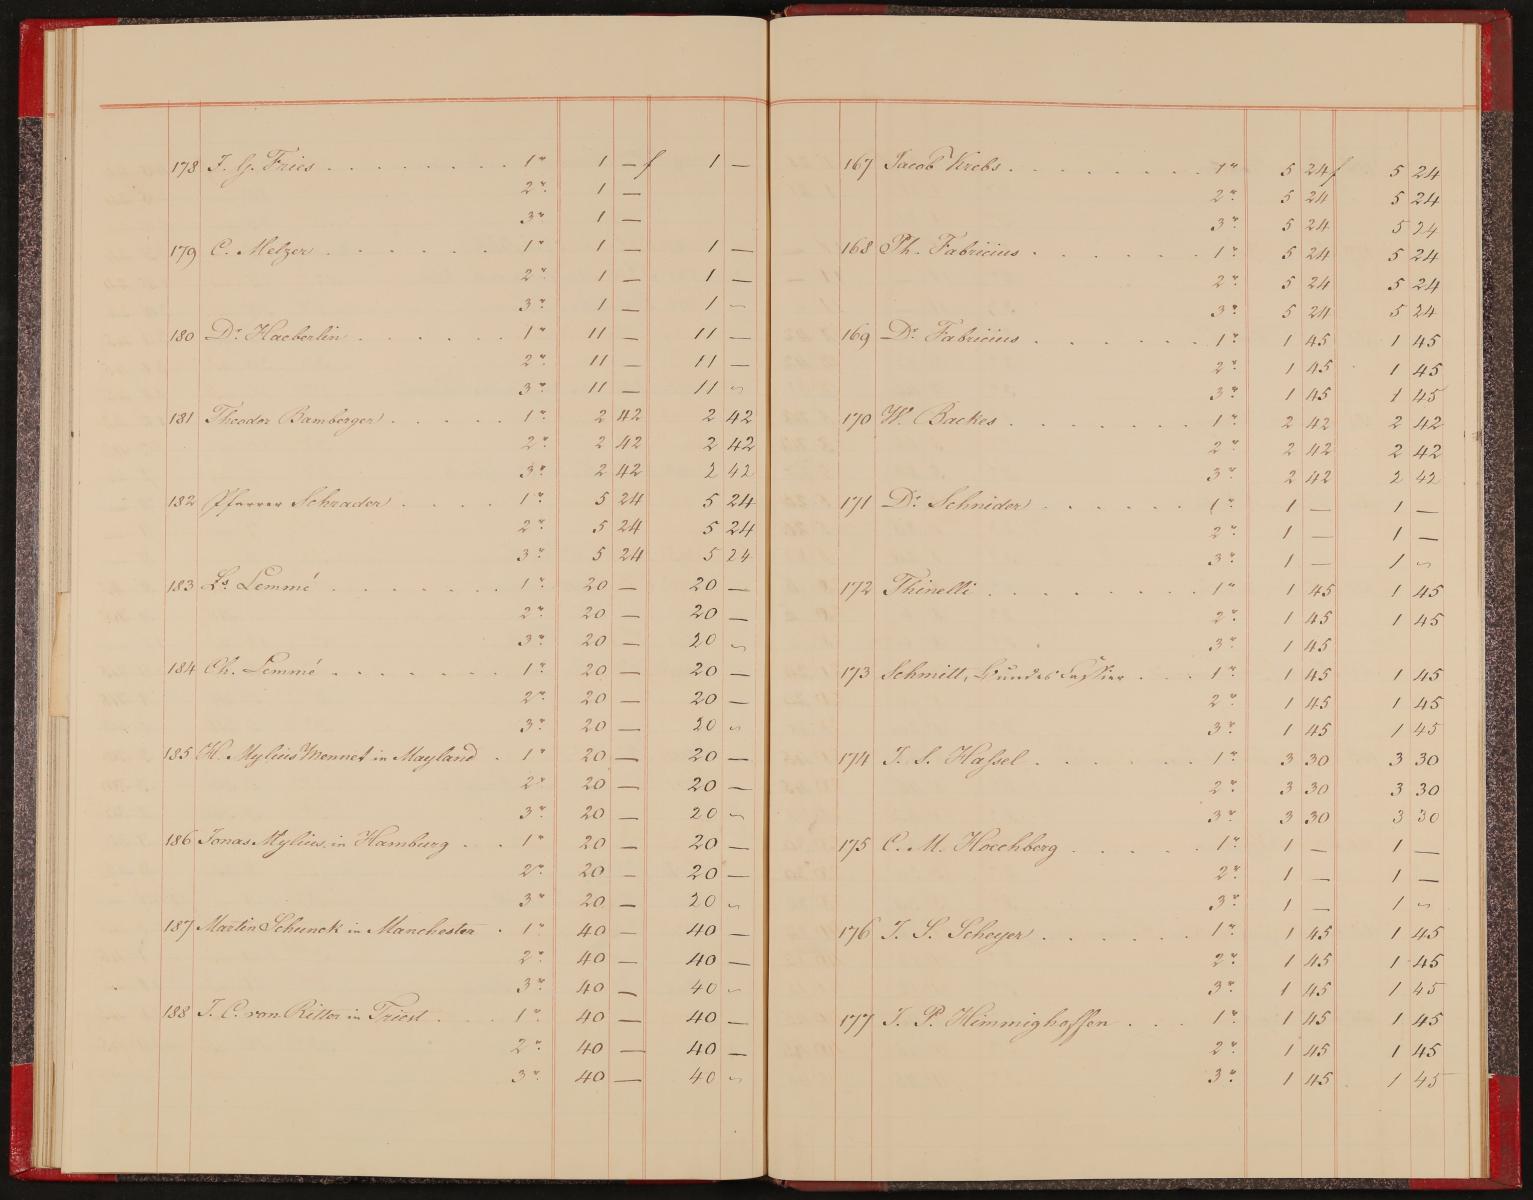 178 J. G. Fries . . . . . . . . 1r 1 — f 1 —
2r 1 —
3r 1 —
179 C. Melzer . . . . . . . 1r 1 — 1 —
2r 1 — 1 —
3r 1 — 1 —
180 Dr. Haeberlin . . . . . . 1r 11 — 11 —
2r 11 — 11 —
3r 11 — 11 —
181 Theodor Bamberger . . . . . 1r 2 42 2 42
2r 2 42 2 42
3r 2 42 2 42
182 Pfarrer Schrader . . . . 1r 5 24 5 24
2r 5 24 5 24
3r 5 24 5 24
183 Ls. Lemmé . . . . . . . 1r 20 — 20 —
2r 20 — 20 —
3r 20 — 20 —
184 Ch. Lemmé . . . . . . . 1r 20 — 20 —
2r 20 — 20 —
3r 20 — 20 —
185 H. Mylius Monnet in Mayland . 1r 20 — 20 —
2r 20 — 20 —
3r 20 — 20 —
186 Jonas Mylius in Hamburg . . 1r 20 — 20 —
2r 20 — 20 —
3r 20 — 20 —
187 Martin Schunck in Manchester . 1r 40 — 40 —
2r 40 — 40 —
3r 40 — 40 —
188 J. C. von Ritter in Triest . . . 1r 40 — 40 —
2r 40 — 40 —
3r 40 — 40 —
167 Jacob Krebs . . . . . . . . 1r 5 24 f 5 24
2r 5 24 5 24
3r 5 24 5 24
168 Ph. Fabricius . . . . . . 1r 5 24 5 24
2r 5 24 5 24
3r 5 24 5 24
169 Dr. Fabricius . . . . . . . 1r 1 45 1 45
2r 1 45 1 45
3r 1 45 1 45
170 W. Backes . . . . . . . 1r 2 42 2 42
2r 2 42 2 42
3r 2 42 2 42
171 Dr. Schnider . . . . . . 1r 1 — 1 —
2r 1 — 1 —
3r 1 — 1 —
172 Thinelli . . . . . . . . 1r 1 45 1 45
2r 1 45 1 45
3r 1 45
173 Schmitt, Bundes Cassier . . . 1r 1 45 1 45
2r 1 45 1 45
3r 1 45 1 45
174 J. S. Hassel . . . . . . 1r 3 30 3 30
2r 3 30 3 30
3r 3 30 3 30
175 C. M. Hochberg . . . . . 1r 1 — 1 —
2r 1 — 1 —
3r 1 — 1 —
176 J. S. Scheyer . . . . . . 1r 1 45 1 45
2r 1 45 1 45
3r 1 45 1 45
177 J. P. Himmighoffen . . . 1r 1 45 1 45
2r 1 45 1 45
3r 1 45 1 45